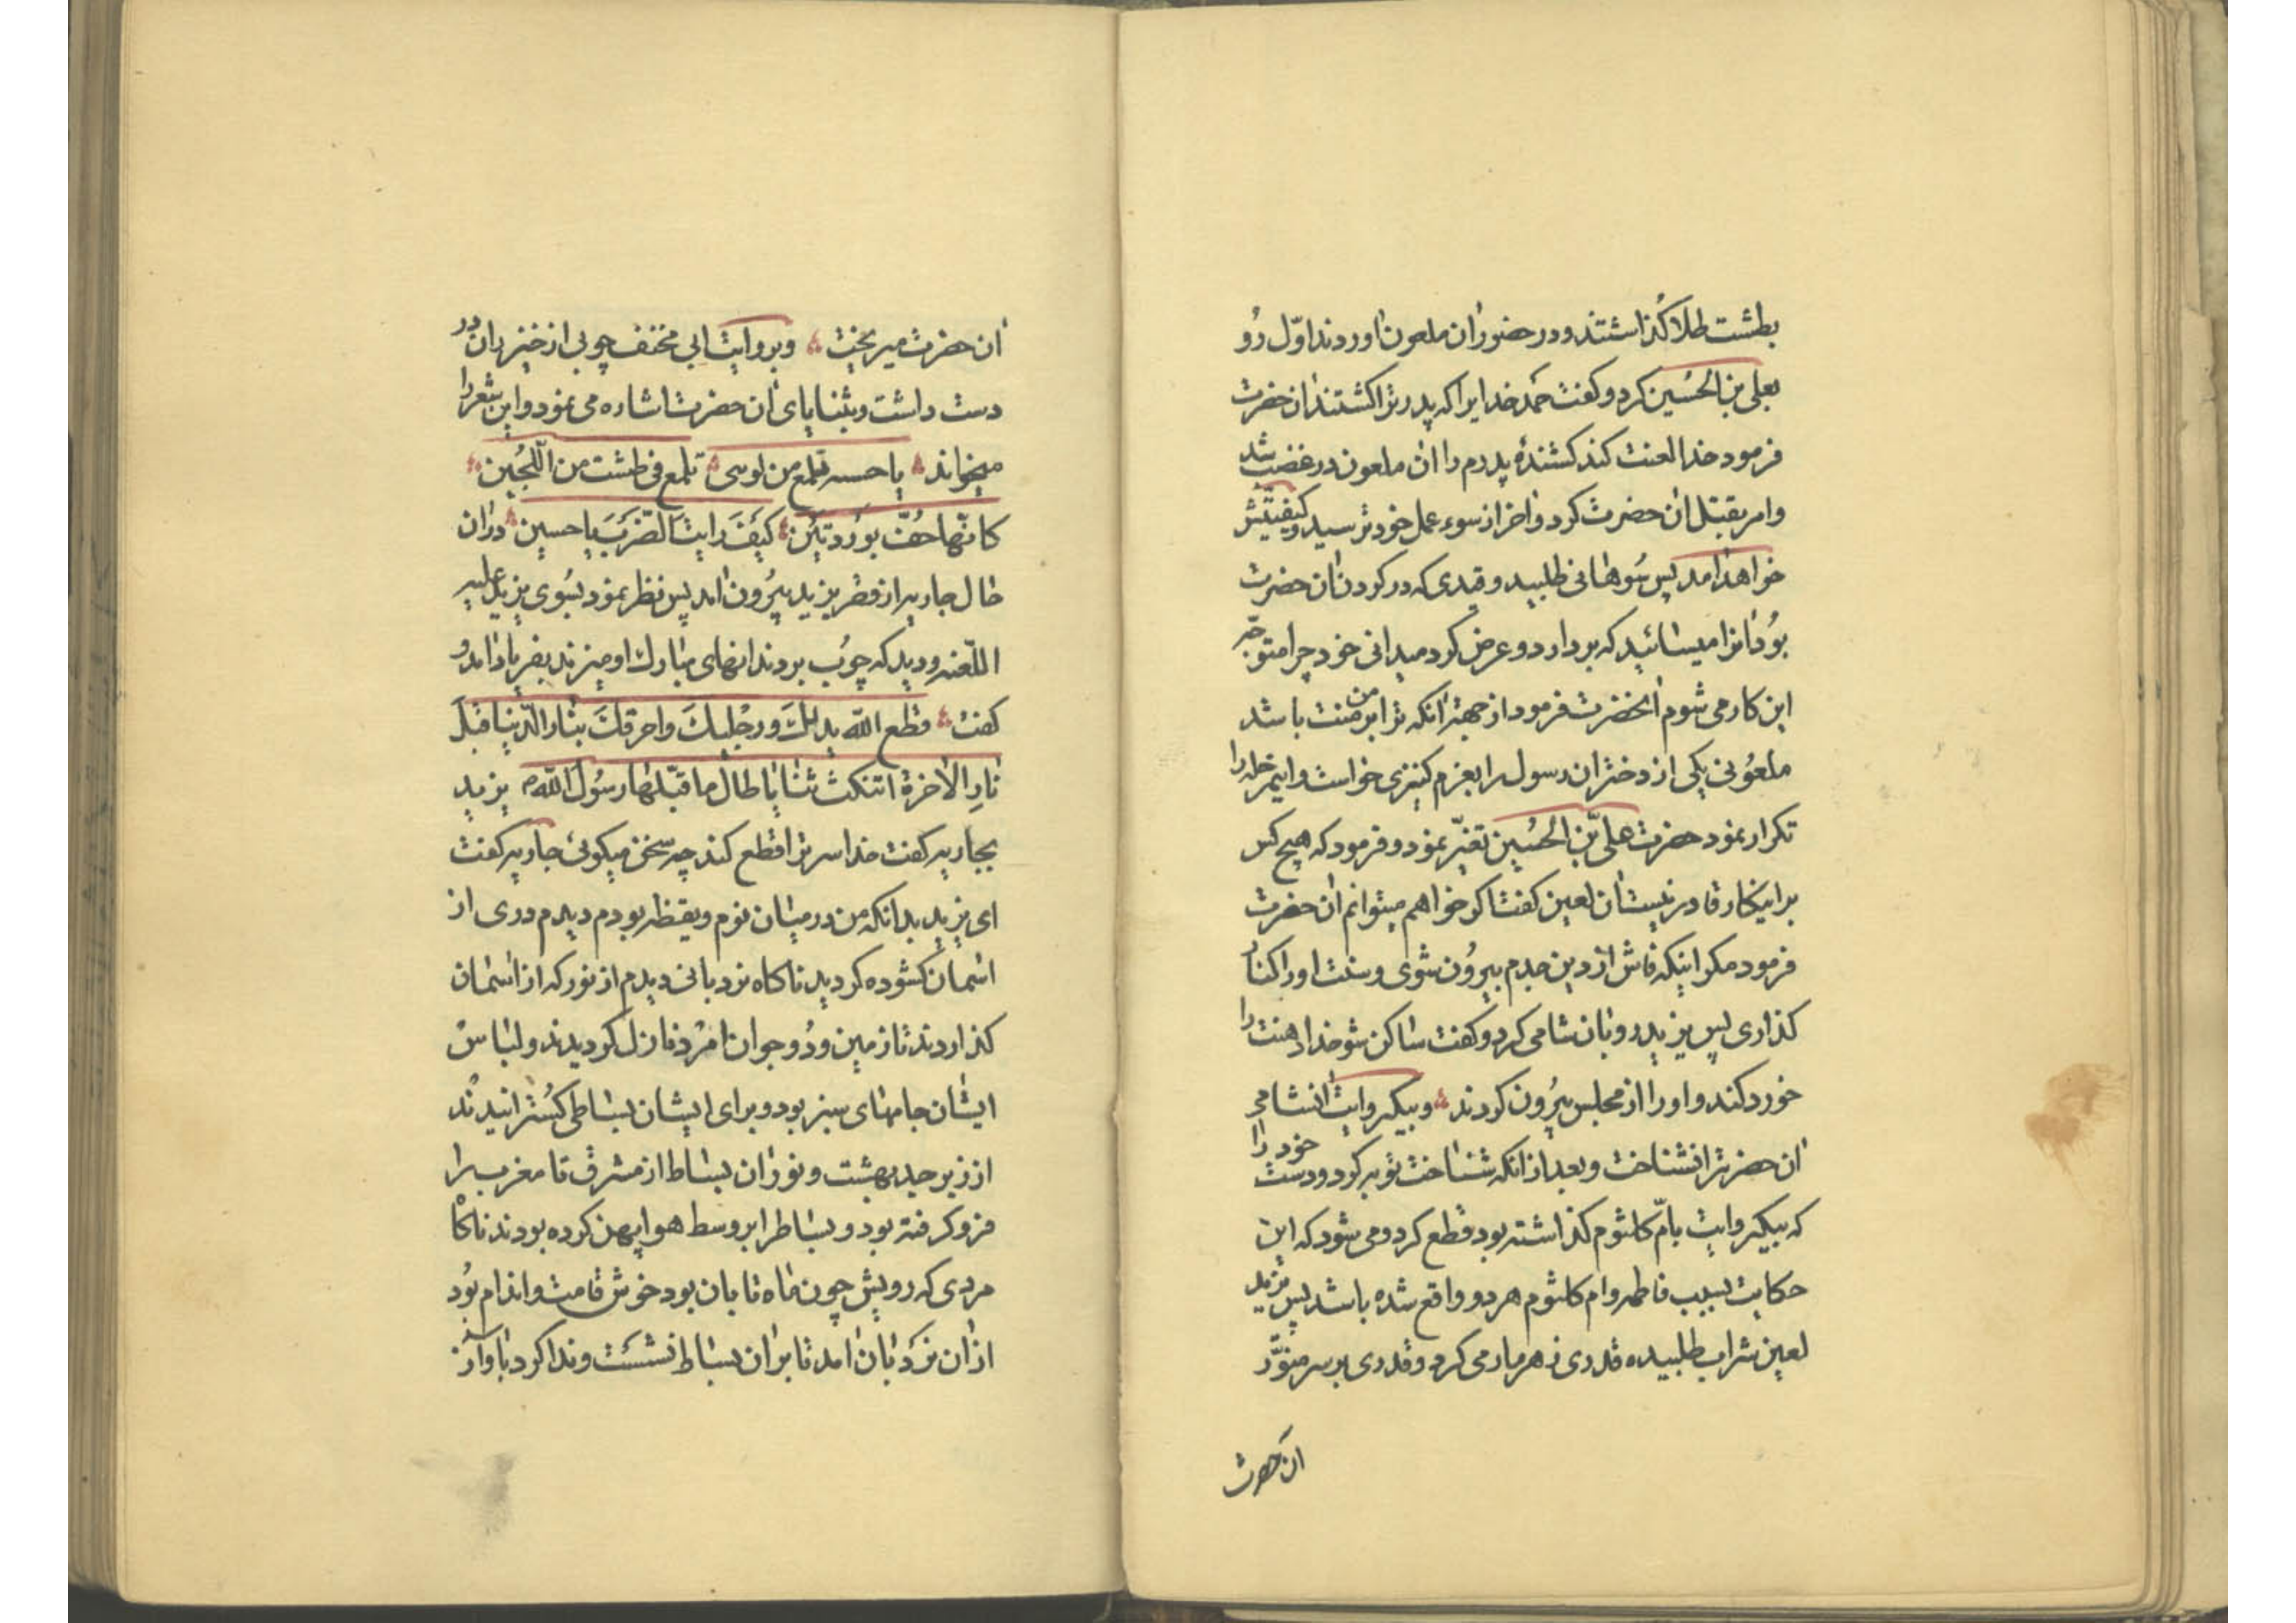 بطشت طلا گذاشتند و در حضور ان ملعون اوردند اوّل رُو
بعلی بن الحُسَین کرد و کفت حَمد خدایرا که پدر ترا کشتند ان حضرت
فرمود خدا لعنت کند کشندهٔ پدرم را ان ملعون در غضب شد
وامر بقتل ان حضرت کرد و اخر از سوء عمل خود ترسید و کیفیتش
خواهد امد پس سُوهانی طلبید و قیدی که در کردن ان حضرت
بوُد انرا میسائید که بردارد و عرض کرد میدانی خود چرا متوجّه
این کار می شوم انحضرت فرمود از جهة انکه ترا بر من منت باشد
ملعُونی یکی از دختران رسول را بعزم کنیزی خواست و این مرحله را
تکرار نمود حضرت علیّ بن الحُسَین تغیّر نمود و فرمود که هیچ کس
بر اینکار قادر نیست ان لعین کفت اگر خواهم میتوانم ان حضرت
فرمود مکر اینکه فاش از دین جدم بیروُن شوی و سنت او را کنار
کذاری پس یزید رو بان شامی کرد و کفت ساکن شو خدا دهنت را
خورد کند و او را از مجلس بیرُون کردند و بیکروایت انشامی
ان حضرترا نشناخت و بعد از انکه شناخت توبه کرد و دست خود را
که بیکروایت بامّ کلثوم کذاشته بود قطع کرد و می شود که این
حکایت بسبب فاطمه و ام کلثوم هر دو واقع شده باشد پس یزید
لعین شراب طلبیده قدری زهرمار می کرد و قدری بر سر منوّر
ان حضرت
ان حضرت میریخت و بروایت ابی مخنف چوبی از خیزران در
دست داشت و بثنایای ان حضرت اشاره می نمود و این شعر را
میخواند یا حسنه تلمع من تلمع فی طشت من اللّجُین
کانّها حُفّت بوَردتَیَن کیَفَ رایتَ الضّربَ یا حسین در ان
حال جاریه از قصر یزید بیرُون امد پس نظر نمود بسُوی یزید علیه
اللّعنه و دید که چوُب بر دندانهای مبارک او میزند بفریاد امد و
کفت قطع الله یدیك و رجلیكَ واحرقكَ بنار الدّنیا قبلَ
نارِ الاخرة اتنکث ثنایا طال ما قبّلها رسُول الله یزید
بجاریه کفت خدا سر ترا قطع کند چه سخن میکوئی جاریه کفت
ای یزید بدانکه من در میان نوم و یقظه بودم دیدم دری از
اسمان کشوده کردید ناکاه نردبانی دیدم از نور که از اسمان
کذاردند تا زمین و دُو جوان امرْد نازل کردیدند و لباس
ایشان جامهای سبز بود و برای ایشان بساطی کسُترانیدند
از زبرجد بهشت و نور ان بساط از مشرق تا مغرب را
فرو کرفته بود و بساط را بر وسط هوا پهن کرده بودند ناکاه
مردی که رویش چون ماه تابان بود خوش قامت و اندام بُود
از ان نردَبان امد تا بر ان بساط نشست و ندا کرد باواز